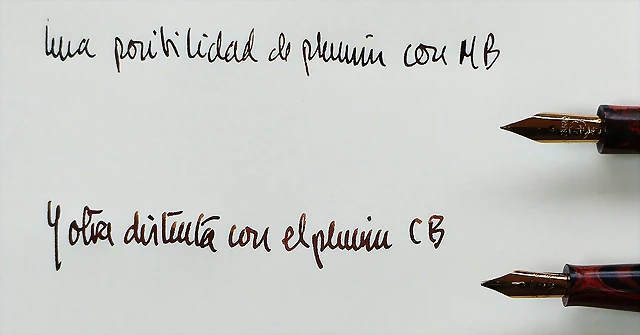 Una posibilidad de plumín con MB
Y otra distinta con el plumín CB